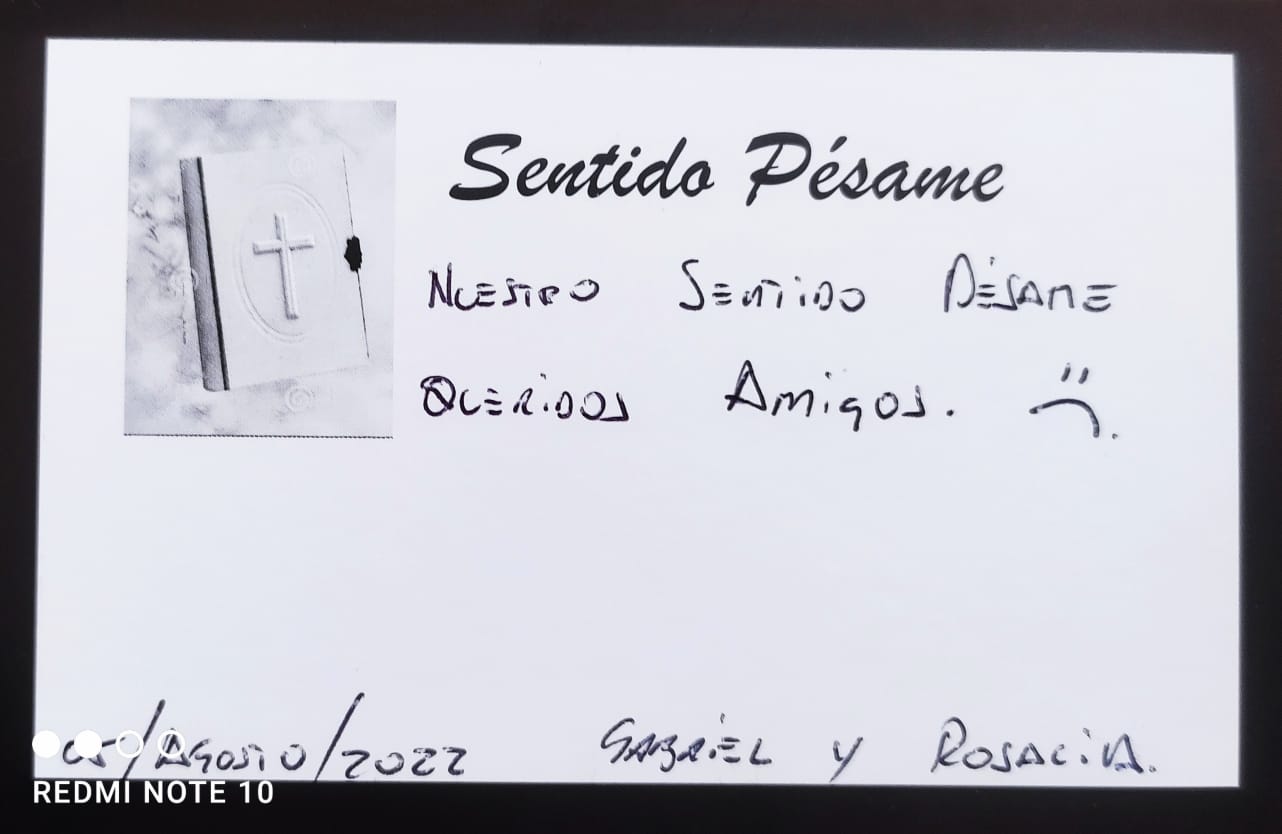 Sentido Pésame
NUESTRO SENTIDO PÉSAME
QUERIDOS AMIGOS.
05/AGOSTO/2022 GABRIEL Y ROSALIA.
REDMI NOTE 10